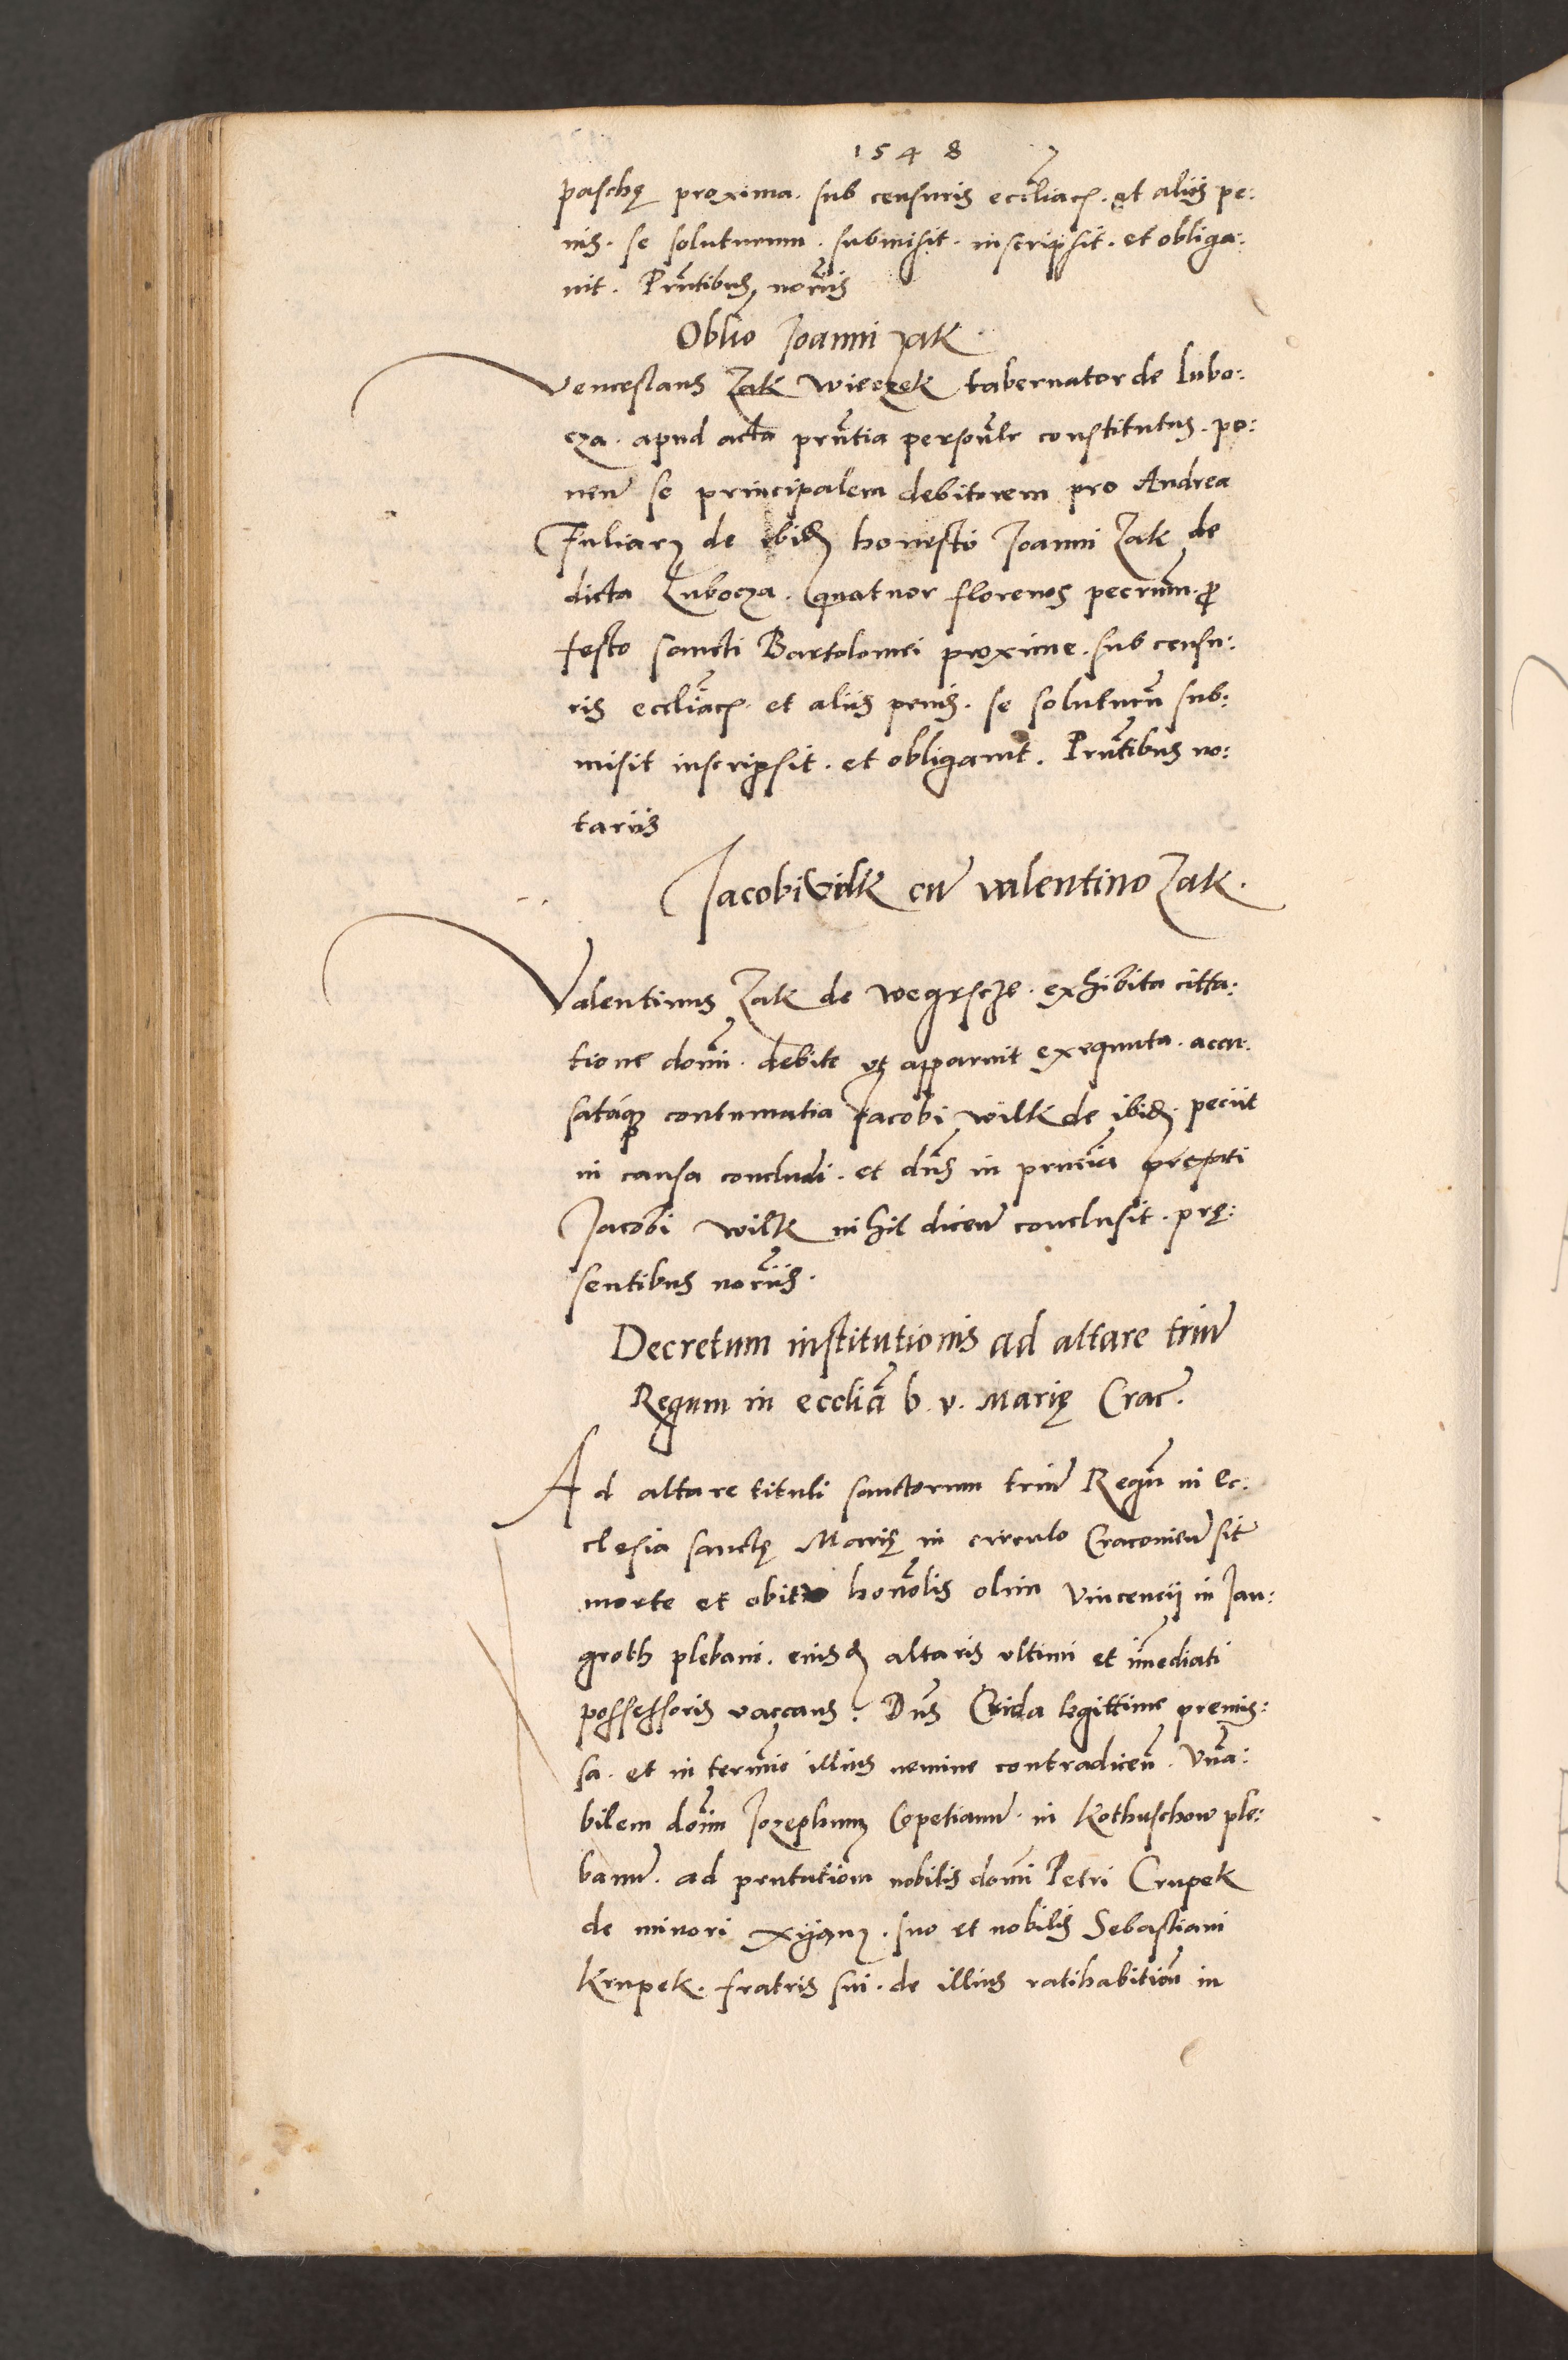 1548
paschę proxima. sub censuris eccliacꝫ. et aliis pe:
nis. se soluturum. submisit. inscripsit. et obliga:
uit. Prntibus, noriis
Oblio Joanni zak
Venceslaus Zak Wieczek tabernator de Lubo:
cza. apud acta prntia personalr constitutus. po:
nen se principalem debitorem pro Andrea
Fuliarz de ibidꝫ honesto Joanni Zak de
dicta Lubocza. Quatuor florenos pecrum. ꝓ
festo sancti Bartolomei proxime. sub censu:
ris eccliacꝫ. et aliis penis. se soluturu sub:
misit inscripsit. et obligauit. Prntibus no:
tariis
Jacobi Vilk cu valentino Zak.
Valentinus Zak de Wegrscze. exhibita citta:
tione domi. debite vt apparuit exequuta. accu:
sataqꝫ contumatia Jacobi Wilk de ibidꝫ. peciit
in causa concludi. et dns in pnucia prefati
Jacobi Wilk nihil dicen conclusit. prę:
sentibus noriis.
Decretum institutionis ad altare triu
Regum in ecclia b. v. Marię Crac.
Ad altare tituli sanctorum triu Regu in ec:
clesia sanctę Marię in circulo Cracouien sit
morte et obitu honolis olim Vincencij in Jan:
groth plebani. eiusdꝫ altaris vltimi et imediati
possessoris vaccans. Dns Crida legittime premis:
sa. et in termio illius nemine contradicen. Vna:
bilem dom Jozephum Copetianu. in Kothuschow ple:
banu. ad prntatiom nobilis domi Petri Crupek
de minori Xijanz. suo et nobilis Sebastiani
Krupek. fratris sui. de illius ratihabition in